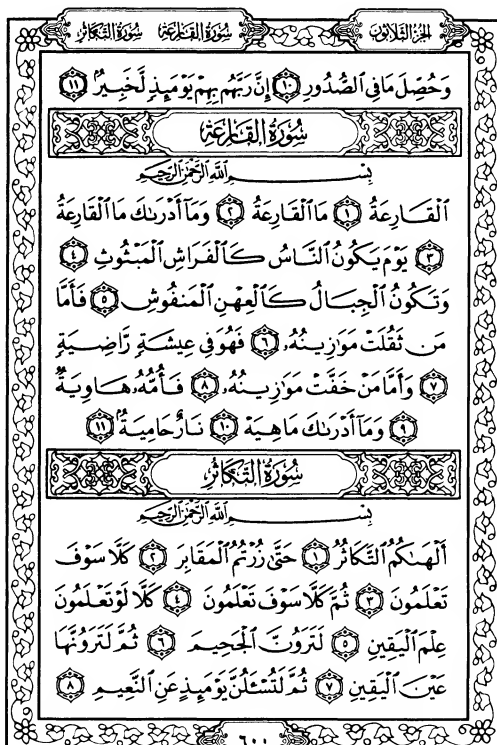 سُورَةُ القَارِعَة سُورَةُ التَّكَاثُر الجُزءُ الثَّلَاثُونَ
وَحُصِّلَ مَا فِى ٱلصُّدُورِ ١٠ إِنَّ رَبَّهُم بِهِمْ يَوْمَئِذٍ لَّخَبِيرٌۢ ١١
سُورَةُ القَارِعَة
بِسْمِ ٱللَّهِ ٱلرَّحْمَٰنِ ٱلرَّحِيمِ
ٱلْقَارِعَةُ ١ مَا ٱلْقَارِعَةُ ٢ وَمَآ أَدْرَىٰكَ مَا ٱلْقَارِعَةُ
٣ يَوْمَ يَكُونُ ٱلنَّاسُ كَٱلْفَرَاشِ ٱلْمَبْثُوثِ ٤
وَتَكُونُ ٱلْجِبَالُ كَٱلْعِهْنِ ٱلْمَنفُوشِ ٥ فَأَمَّا
مَن ثَقُلَتْ مَوَٰزِينُهُۥ ٦ فَهُوَ فِى عِيشَةٍ رَّاضِيَةٍ
٧ وَأَمَّا مَنْ خَفَّتْ مَوَٰزِينُهُۥ ٨ فَأُمُّهُۥ هَاوِيَةٌ
٩ وَمَآ أَدْرَىٰكَ مَا هِيَهْ ١٠ نَارٌ حَامِيَةٌۢ ١١
سُورَةُ التَّكَاثُرِ
بِسْمِ ٱللَّهِ ٱلرَّحْمَٰنِ ٱلرَّحِيمِ
أَلْهَىٰكُمُ ٱلتَّكَاثُرُ ١ حَتَّىٰ زُرْتُمُ ٱلْمَقَابِرَ ٢ كَلَّا سَوْفَ
تَعْلَمُونَ ٣ ثُمَّ كَلَّا سَوْفَ تَعْلَمُونَ ٤ كَلَّا لَوْ تَعْلَمُونَ
عِلْمَ ٱلْيَقِينِ ٥ لَتَرَوُنَّ ٱلْجَحِيمَ ٦ ثُمَّ لَتَرَوُنَّهَا
عَيْنَ ٱلْيَقِينِ ٧ ثُمَّ لَتُسْـَٔلُنَّ يَوْمَئِذٍ عَنِ ٱلنَّعِيمِ ٨